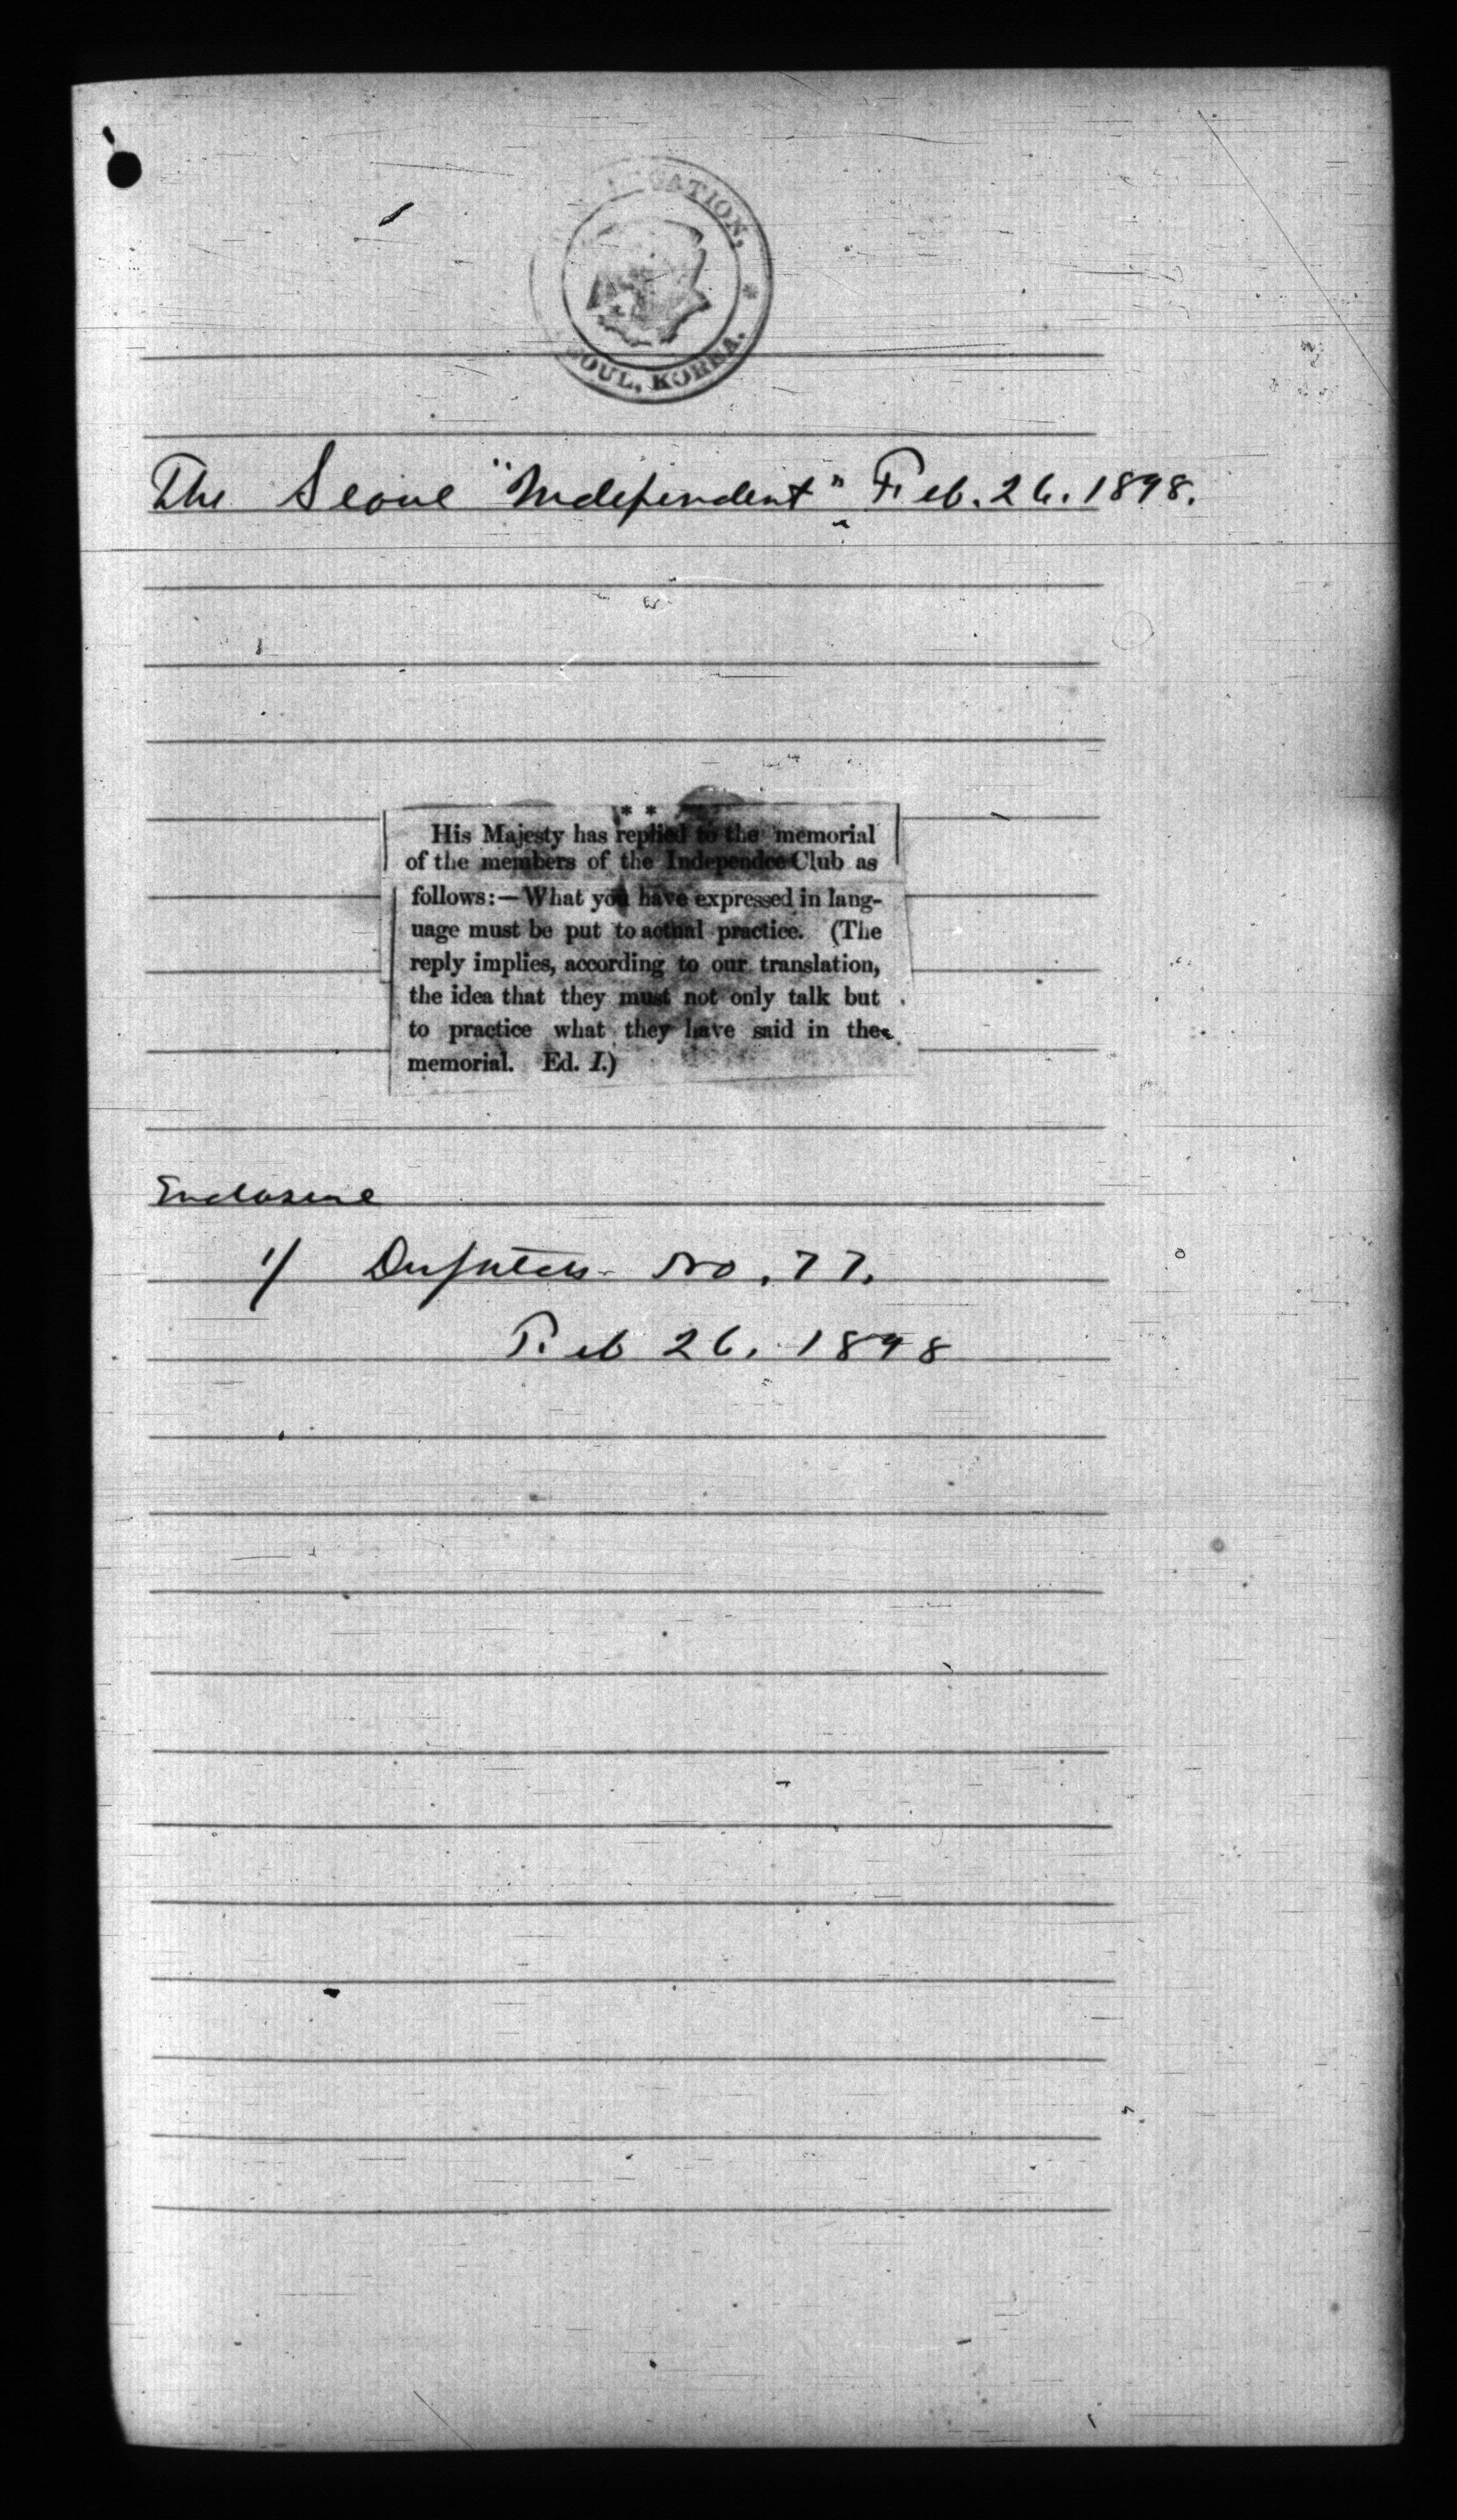 GATION,
OUL, KOREA.
The Seoul "Independent" Feb. 26. 1898.
* *
His Majesty has replied to the memorial
of the members of the Independce Club as
follows:—What you have expressed in lang-
uage must be put to actual practice. (The
reply implies, according to our translation,
the idea that they must not only talk but
to practice what they have said in the
memorial. Ed. I.)
Enclosure
1/ Dispatch No. 77.
Feb 26. 1898